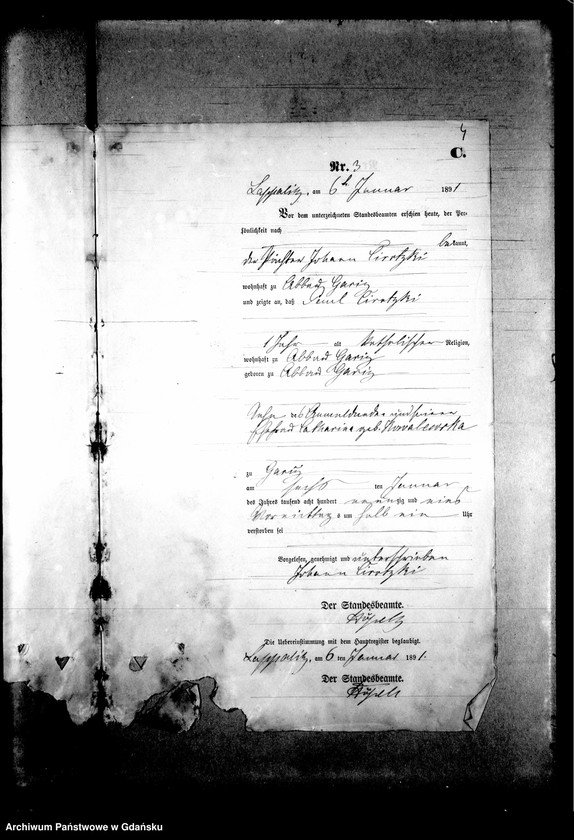 4
C.
Nr. 3
Lappalitz, am 6t Januar 1891
Vor dem unterzeichneten Standesbeamten erschien heute, der Per-
sönlichkeit nach
bekannt,
der Pächter Johann Cirotzki
wohnhaft zu Abbau Garcz
und zeigte an, daß Paul Cirotzki
1 Jahr alt katholischer Religion,
wohnhaft zu Abbau Garcz
geboren zu Abbau Garcz
Sohn des Anmeldenden und seiner
Ehefrau Catharina geb. Kowalewska
zu Garcz
am sechs ten Januar
des Jahres tausend acht hundert neunzig und eins
Vormittags um halb ein Uhr
verstorben sei
Vorgelesen, genehmigt und unterschrieben
Johann Cirotzki
Der Standesbeamte.
Die Uebereinstimmung mit dem Hauptregister beglaubigt.
Lappalitz, am 6 ten Januar 1891.
Der Standesbeamte.
Archiwum Państwowe w Gdańsku